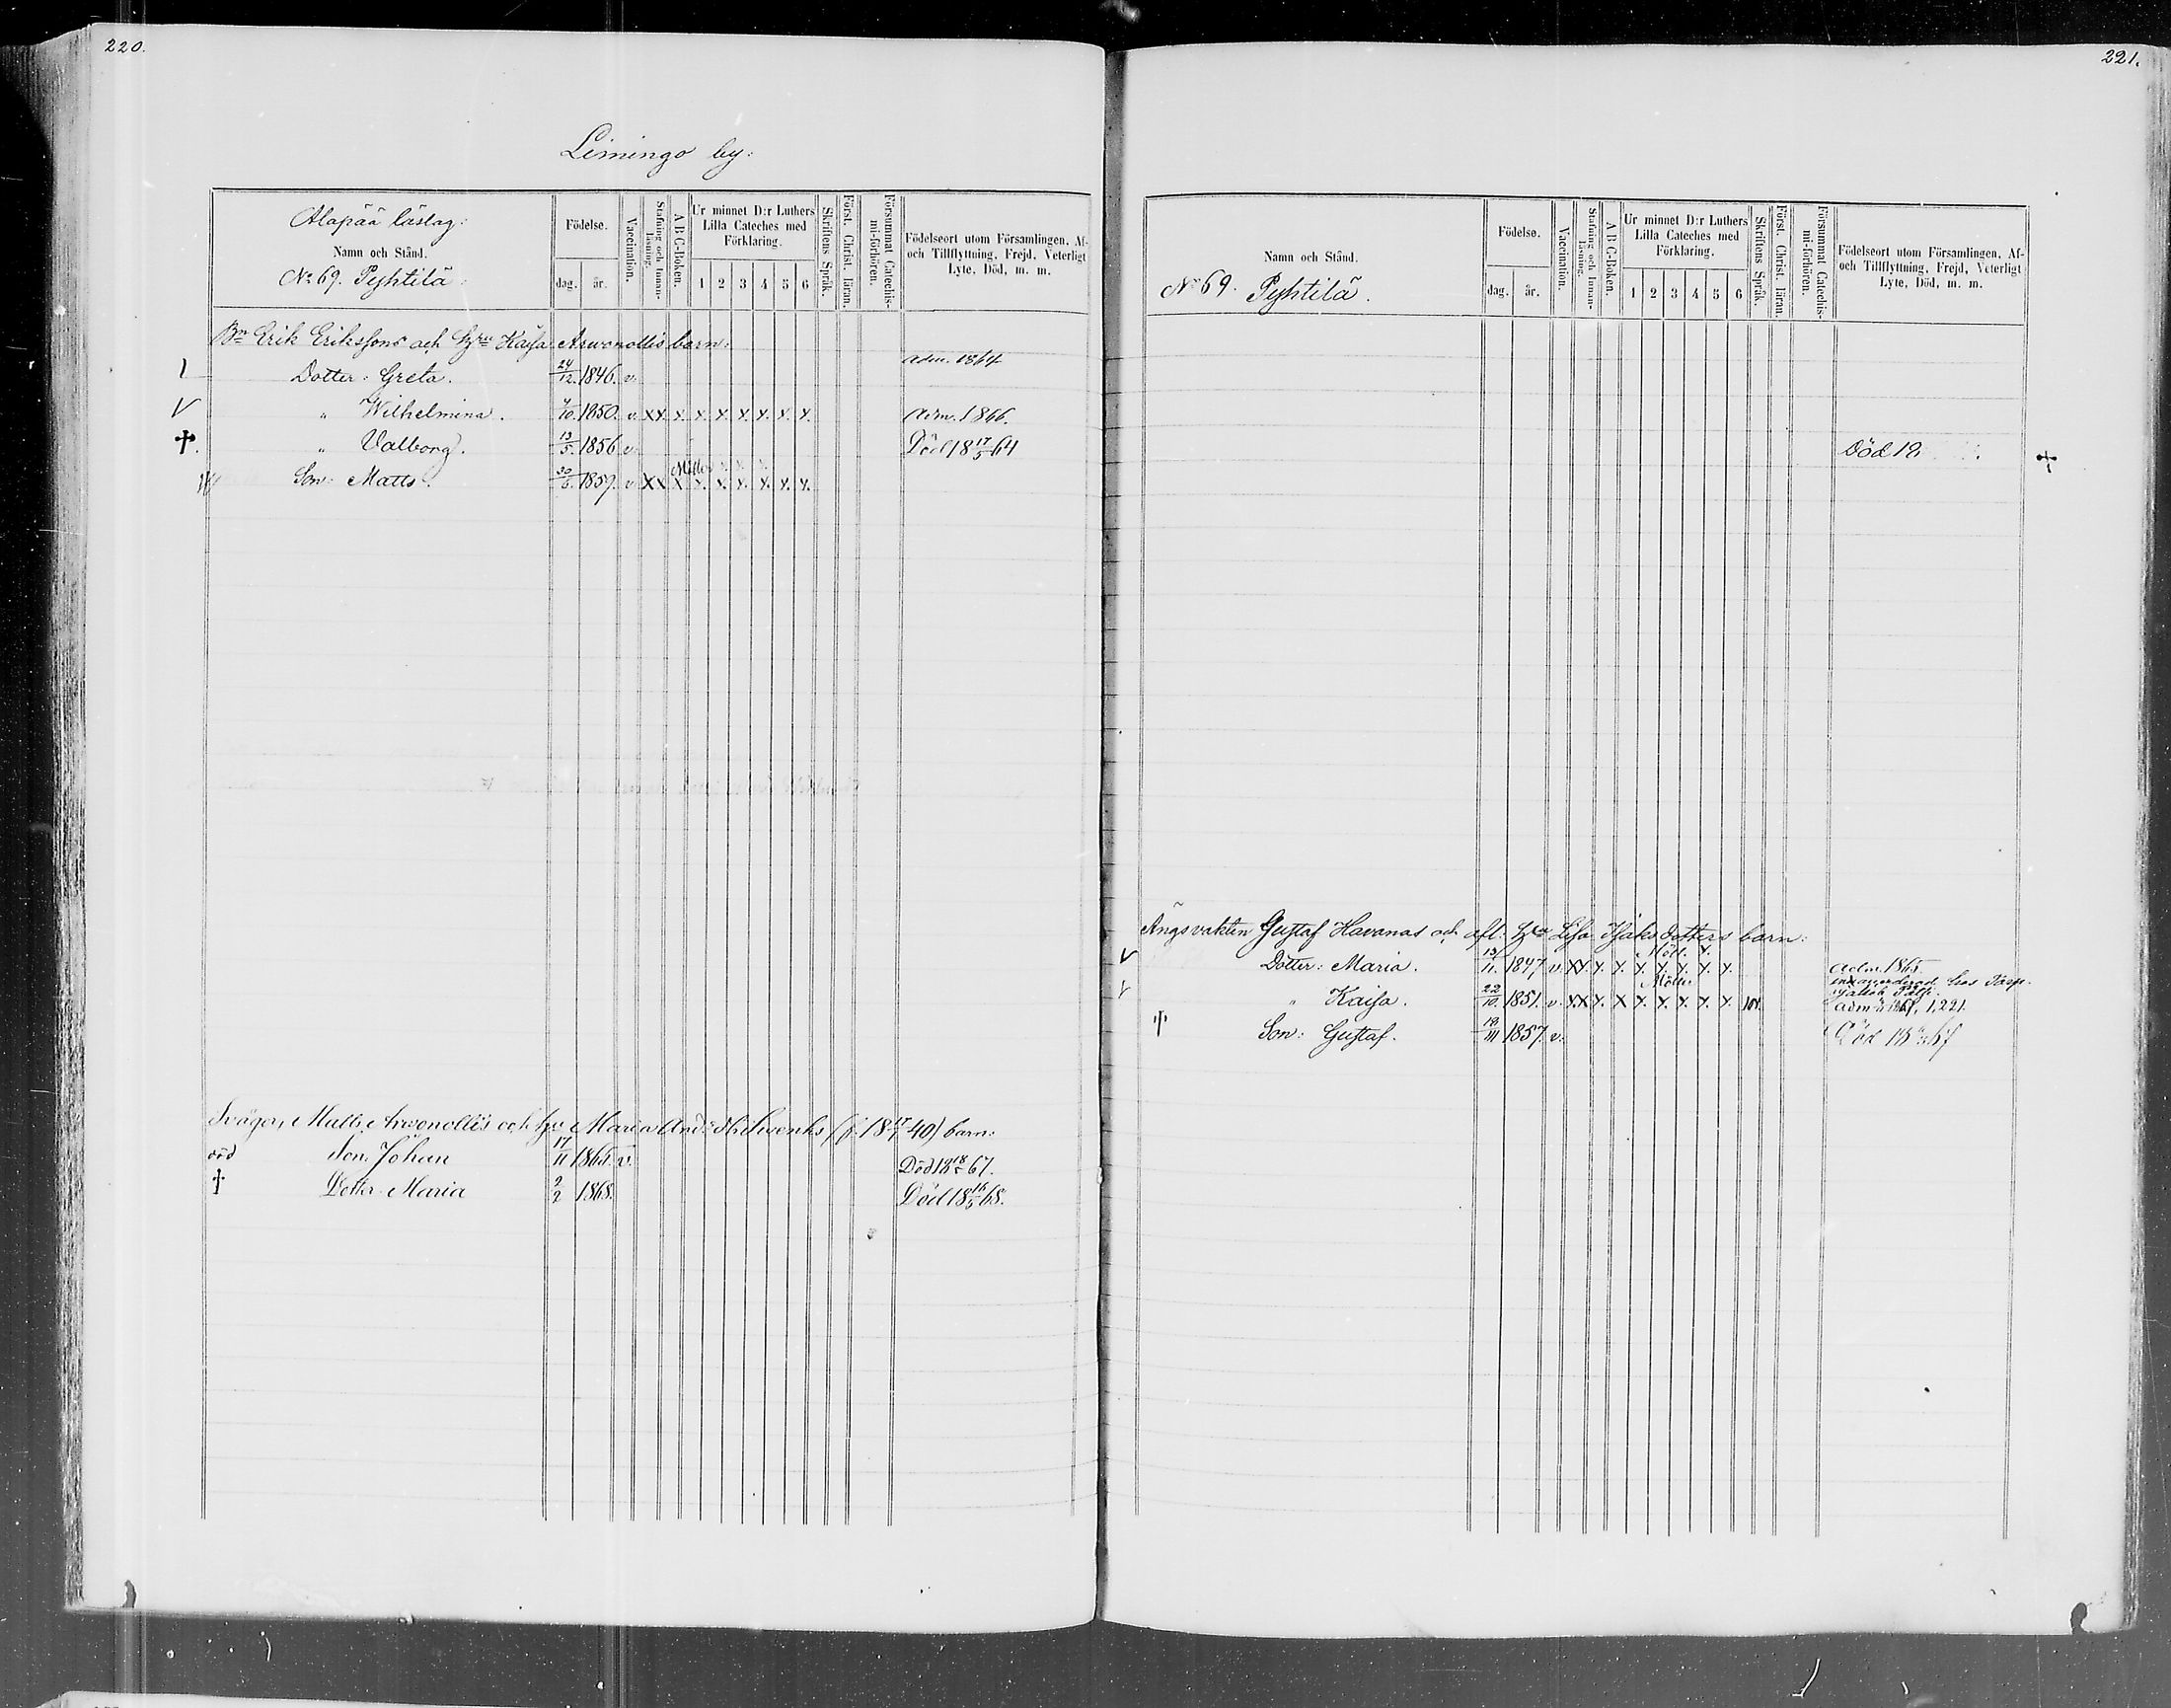 220.
Limingo by:
Alapää läslag:
Namn och Stånd.
No 69. Pyhtilä.
Födelse.
dag. år.
Vaccination.
Stafning och Innan-läsning.
A B C-Boken.
Ur minnet D:r Luthers
Lilla Cateches med
Förklaring.
1 2 3 4 5 6
Skriftens Språk.
Först. Christ. läran.
Försummat Catechis-mi-förhören.
Födelseort utom Församlingen, Af-
och Tillflyttning, Frejd, Veterligt
Lyte, Död, m. m.
Bn Erik Erikssons och Hru Kaisa Arwonollis barn:
Dotter: Greta. 24/12. 1846. v. adm. 1864
" Wilhelmina. 4/10. 1850. v. XX X. X. X. X. X. X. X. adm. 1866.
† " Valborg. 13/5. 1856 v. Död 18 17/5 64
Möller
Son: Matts. 30/6. 1859. v. XX X X. X. X. X. X. X.
Svågern Matts Arwonollis och hu Maria And:dr (f. 18 17/1 40) barn:
död Son Johan 17/11 1865 v. Död 18 18/5 67.
† Dotter Maria 2/2 1868. Död 18 16/5 68.
221.
Namn och Stånd.
No 69. Pyhtilä.
Födelse.
dag. år.
Vaccination.
Stafning och Innan-läsning.
A B C-Boken.
Ur minnet D:r Luthers
Lilla Cateches med
Förklaring.
1 2 3 4 5 6
Skriftens Språk.
Först. Christ. läran.
Försummat Catechis-mi-förhören.
Födelseort utom Församlingen, Af-
och Tillflyttning, Frejd, Veterligt
Lyte, Död, m. m.
Död 18 †
Ängsvakten Gustaf Havanas och afl. Hru Lisa Isaksdotters barn:
Möll. X.
Dotter: Maria. 13/11. 1847 v. XX. X. X. X. X. X. X. X. adm. 1865
Möller
" Kaisa. 22/10. 1851. v. XX X. X X. X. X. X. X. adm 1,221.
† Son: Gustaf. 18/III 1857. v. Död 18 67